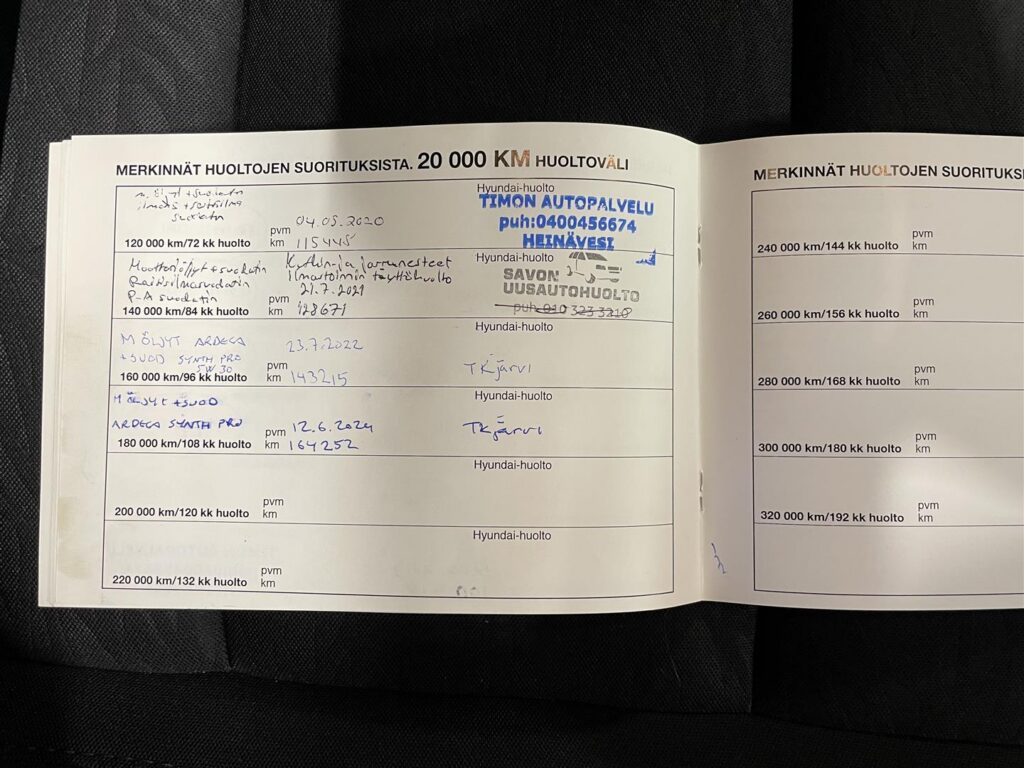 MERKINNÄT HUOLTOJEN SUORITUKSISTA. 20 000 KM HUOLTOVÄLI
m. öljyt + suodatin
ilmans + raitisilma
suodatin
pvm 04.05.2020
120 000 km/72 kk huolto km 115445
Hyundai-huolto
TIMON AUTOPALVELU
puh:0400456674
HEINÄVESI
Moottoriöljyt + suodatin Kytkin- ja jarrunesteet
Raitisilmasuodatin Ilmastoinnin täyttöhuolto
P-A suodatin 21.7.2021
pvm
140 000 km/84 kk huolto km 128671
Hyundai-huolto
SAVON
UUSAUTOHUOLTO
puh. 010 323 3210
MÖLJYT ARDECA 23.7.2022
+ SUOD SYNTH PRO
5W30 pvm
160 000 km/96 kk huolto km 143215
Hyundai-huolto
TKjärvi
MÖLJYT + SUOD
ARDECA SYNTH PRO pvm 12.6.2024
180 000 km/108 kk huolto km 164252
Hyundai-huolto
TKjärvi
pvm
200 000 km/120 kk huolto km
Hyundai-huolto
pvm
220 000 km/132 kk huolto km
Hyundai-huolto
MERKINNÄT HUOLTOJEN SUORITUKSI
pvm
240 000 km/144 kk huolto km
pvm
260 000 km/156 kk huolto km
pvm
280 000 km/168 kk huolto km
pvm
300 000 km/180 kk huolto km
pvm
320 000 km/192 kk huolto km